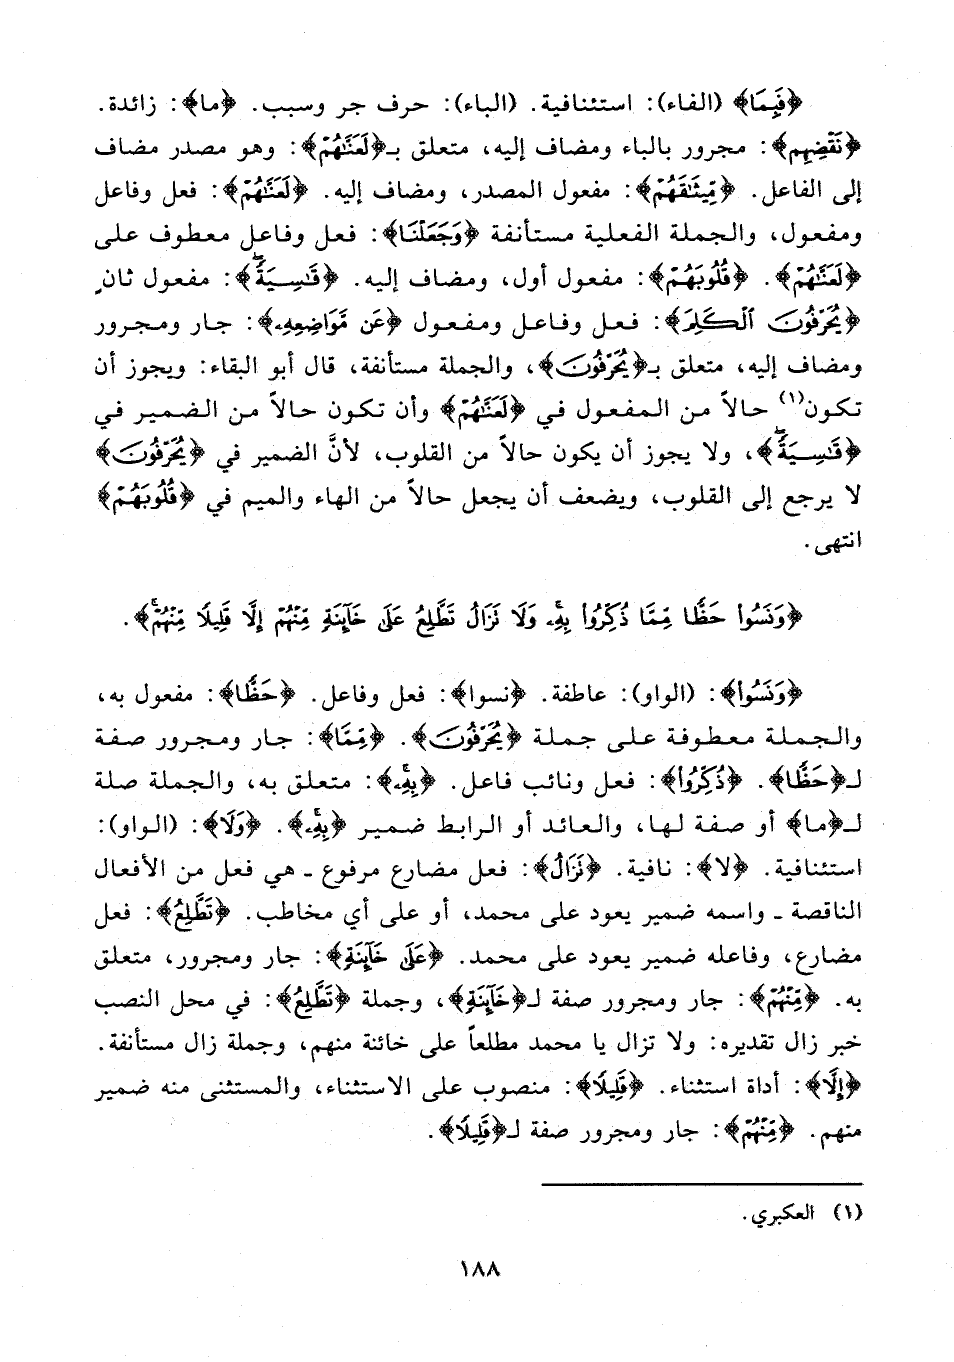 ﴿فَبِمَا﴾ (الفاء): استئنافية. (الباء): حرف جر وسبب. ﴿ما﴾: زائدة.
﴿نَقْضِهِم﴾: مجرور بالباء ومضاف إليه، متعلق بـ﴿لَعَنَّٰهُمْ﴾: وهو مصدر مضاف
إلى الفاعل. ﴿مِّيثَٰقَهُمْ﴾: مفعول المصدر، ومضاف إليه. ﴿لَعَنَّٰهُمْ﴾: فعل وفاعل
ومفعول، والجملة الفعلية مستأنفة ﴿وَجَعَلْنَا﴾: فعل وفاعل معطوف على
﴿لَعَنَّٰهُمْ﴾. ﴿قُلُوبَهُمْ﴾: مفعول أول، ومضاف إليه. ﴿قَٰسِيَةً﴾: مفعول ثانٍ
﴿يُحَرِّفُونَ ٱلْكَلِمَ﴾: فعل وفاعل ومفعول ﴿عَن مَّوَاضِعِهِۦ﴾: جار ومجرور
ومضاف إليه، متعلق بـ﴿يُحَرِّفُونَ﴾، والجملة مستأنفة، قال أبو البقاء: ويجوز أن
تكون(١) حالاً من المفعول في ﴿لَعَنَّٰهُمْ﴾ وأن تكون حالاً من الضمير في
﴿قَٰسِيَةً﴾، ولا يجوز أن يكون حالاً من القلوب، لأنَّ الضمير في ﴿يُحَرِّفُونَ﴾
لا يرجع إلى القلوب، ويضعف أن يجعل حالاً من الهاء والميم في ﴿قُلُوبَهُمْ﴾
انتهى.
﴿وَنَسُوا۟ حَظًّا مِّمَّا ذُكِّرُوا۟ بِهِۦ وَلَا نَزَالُ تَطَّلِعُ عَلَىٰ خَآئِنَةٍ مِّنْهُمْ إِلَّا قَلِيلًا مِّنْهُمْ﴾.
﴿وَنَسُوا۟﴾: (الواو): عاطفة. ﴿نسوا﴾: فعل وفاعل. ﴿حَظًّا﴾: مفعول به،
والجملة معطوفة على جملة ﴿يُحَرِّفُونَ﴾. ﴿مِّمَّا﴾: جار ومجرور صفة
لـ﴿حَظًّا﴾. ﴿ذُكِّرُوا۟﴾: فعل ونائب فاعل. ﴿بِهِۦ﴾: متعلق به، والجملة صلة
لـ﴿ما﴾ أو صفة لها، والعائد أو الرابط ضمير ﴿بِهِۦ﴾. ﴿وَلَا﴾: (الواو):
استئنافية. ﴿لا﴾: نافية. ﴿نَزَالُ﴾: فعل مضارع مرفوع ـ هي فعل من الأفعال
الناقصة ـ واسمه ضمير يعود على محمد، أو على أي مخاطب. ﴿تَطَّلِعُ﴾: فعل
مضارع، وفاعله ضمير يعود على محمد. ﴿عَلَىٰ خَآئِنَةٍ﴾: جار ومجرور، متعلق
به. ﴿مِّنْهُمْ﴾: جار ومجرور صفة لـ﴿خَآئِنَةٍ﴾، وجملة ﴿تَطَّلِعُ﴾: في محل النصب
خبر زال تقديره: ولا تزال يا محمد مطلعاً على خائنة منهم، وجملة زال مستأنفة.
﴿إِلَّا﴾: أداة استثناء. ﴿قَلِيلًا﴾: منصوب على الاستثناء، والمستثنى منه ضمير
منهم. ﴿مِّنْهُمْ﴾: جار ومجرور صفة لـ﴿قَلِيلًا﴾.
(١) العكبري.
١٨٨